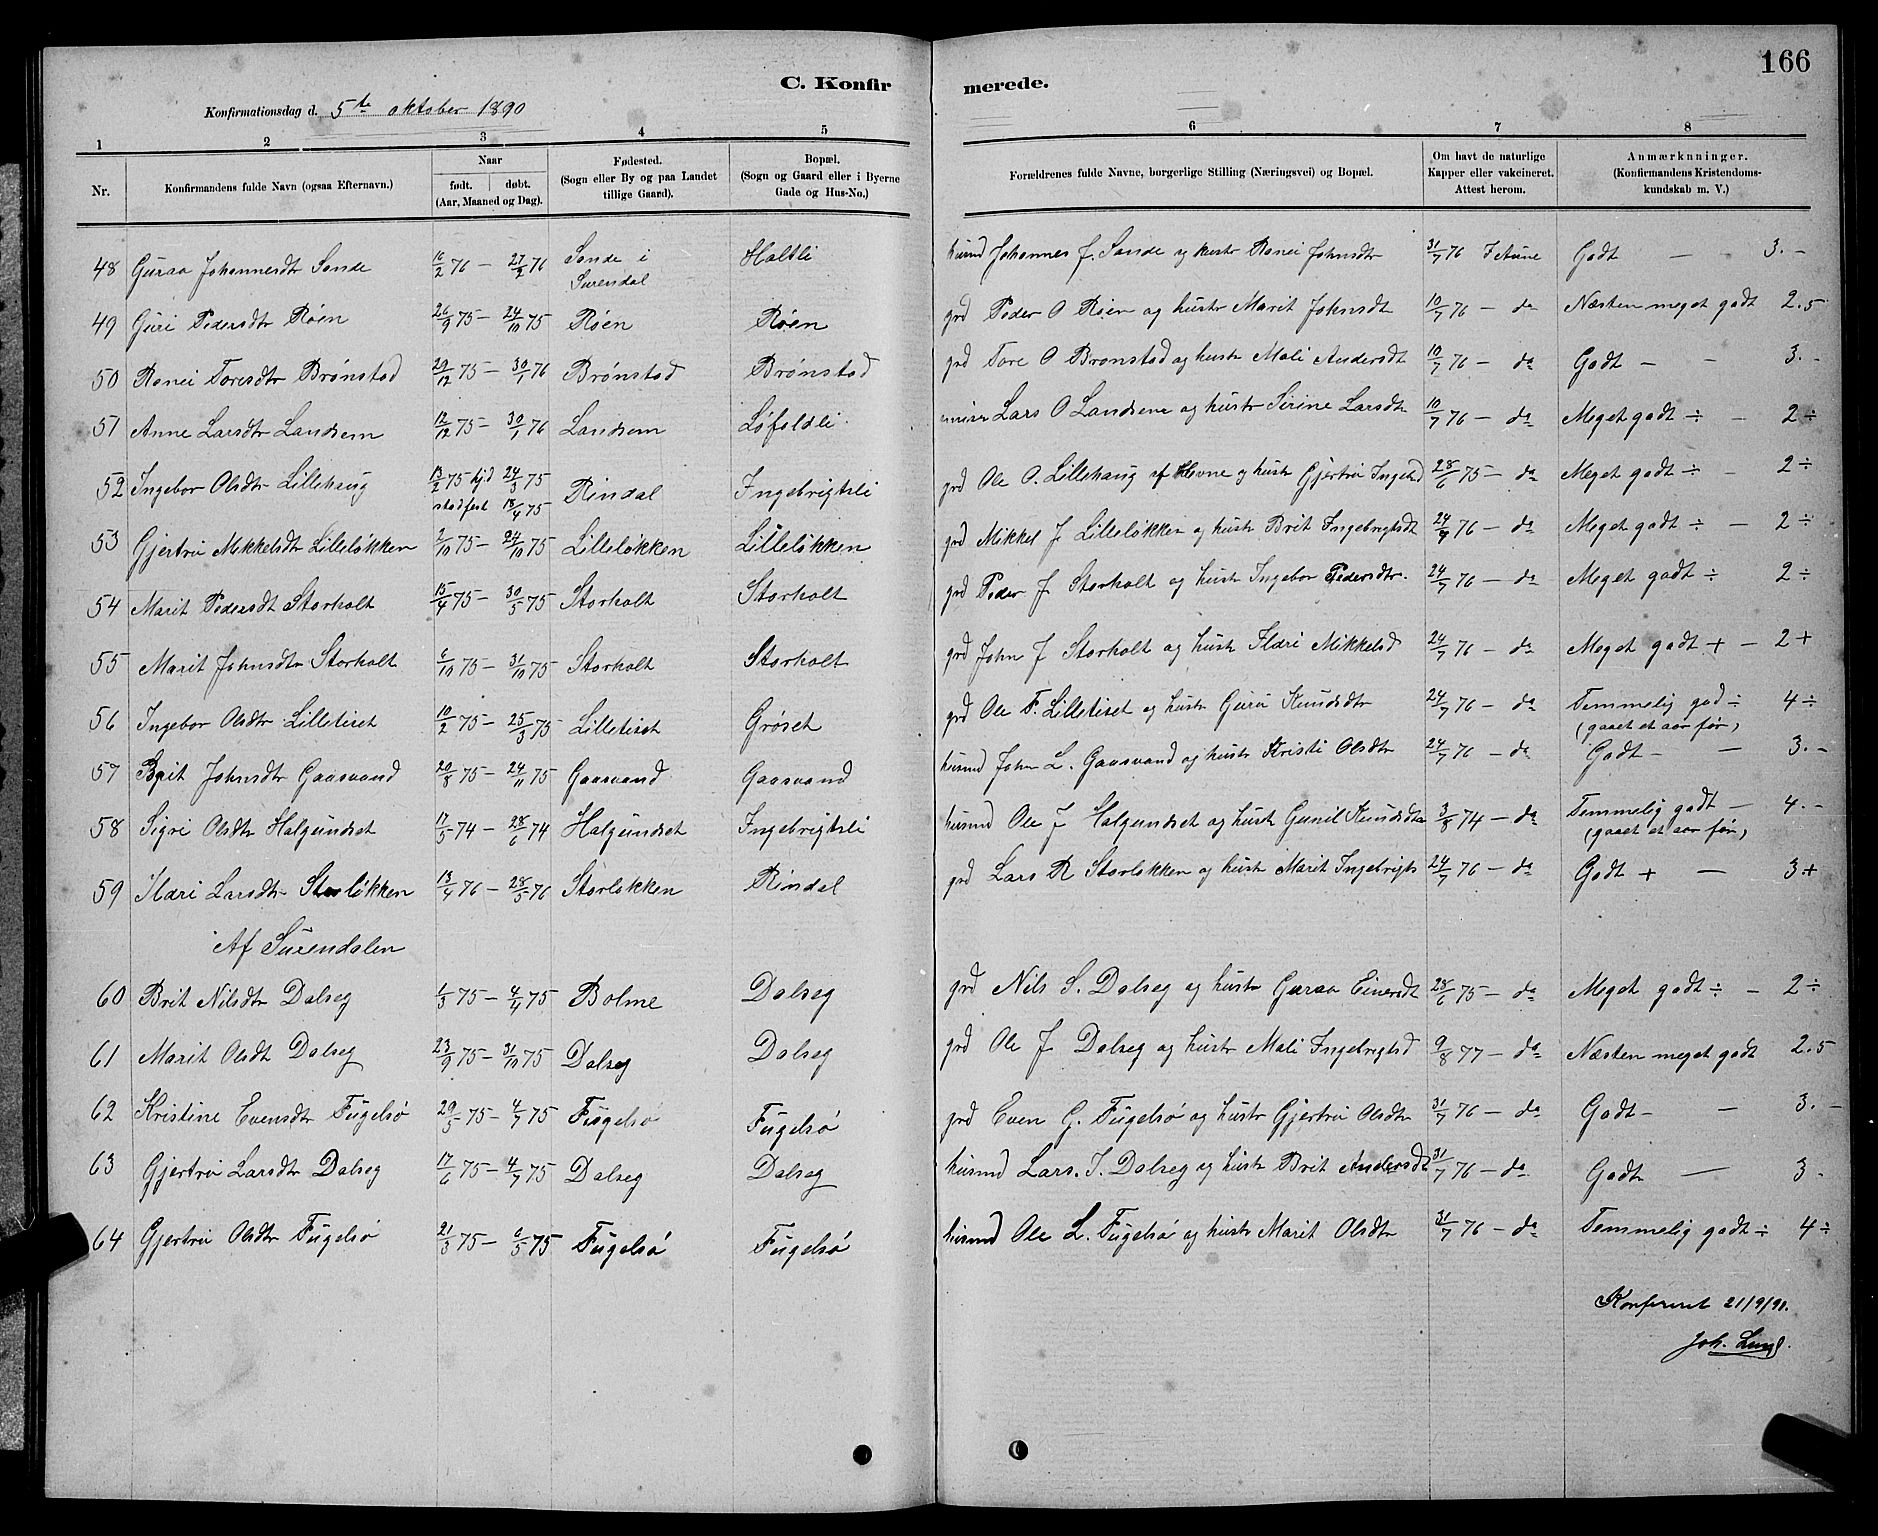 166
C. Konfirmerede.
Konfirmationsdag d. 5te oktober 1890
1 2 3 4 5 6 7 8
Nr. Konfirmandens fulde Navn (ogsaa Efternavn.) Naar født. døbt. (Aar, Maaned og Dag). Fødested. (Sogn eller By og paa Landet tillige Gaard). Bopæl. (Sogn og Gaard eller i Byerne Gade og Hus-No.) Forældrenes fulde Navne, borgerlige Stilling (Næringsvei) og Bopæl. Om havt de naturlige Kapper eller vakcineret. Attest herom. Anmærknninger. (Konfirmandens Kristendomskundskab m. V.)
48 Guraa Johannesdtr Sande 16/2 76 — 27/2 76 Sande i Surendal Haltli husmd Johannes J. Sande og hustr Ranei Johnsdtr 31/7 76 Godt — — 3. -
49 Guri Pedersdtr Røen 26/9 75 — 24/10 75 Røen Røen grd Peder O Røen og hustr Marit Johnsdt 10/7 76 — do Næsten meget godt 2.5
50 Ranei Toresdtr Brønstad 29/12 75 — 30/1 76 Brønstad Brønstad grd Tore O Brønstad og hustr Mali Andersdt 10/7 76 — do Godt — - 3. -
51 Anne Larsdtr Landsem 12/12 75 — 30/1 76 Landsem Løfaldli Lars O Landsem og hustr Sirine Larsdtr 10/7 76 — do Meget godt ÷ — 2 ÷
52 Ingebor Olsdtr Lillehaug 13/2 75 hjd 24/3 75 stadfest 18/4 75 Rindal Ingebrigtsli grd Ole O. Lillehaug af Hevne og hustr Gjertru Ingebd 28/6 75 — do Meget godt ÷ - 2 ÷
53 Gjertru Mikkelsdtr Lilleløkken 2/10 75 — 24/10 75 Lilleløkken Lilleløkken grd Mikkel J Lilleløkken og hustr Brit Ingebrigtsdt 24/7 76 — do Meget godt ÷ — 2 ÷
54 Marit Pedersdt Storholt 15/4 75 — 30/5 75 Storholt Storholt grd Peder J Storholt og hustr Ingebor Pedersdtr. 24/7 76 — do Meget godt ÷ 2 ÷
55 Marit Johnsdtr Storholt 6/10 75 — 31/10 75 Storholt Storholt grd John J Storholt og hustr Ildri Mikkelsd 24/7 76 — do Meget godt + — 2 +
56 Ingebor Olsdtr Lilletiset 10/2 75 — 25/3 75 Lilletiset Grøset grd Ole F. Lilletiset og hustr Guru Knudsdtr 24/7 76 — do Temmelig god ÷ 4 ÷
(gaaet et aar før)
57 Brit Johnsdtr Gaasvand 20/8 75 — 24/11 75 Gaasvand Gaasvand husmd John L. Gaasvand og hustr Kristi Olsdtr 24/7 76 — do Godt — — 3. -
58 Sigri Olsdtr Halgundset 17/5 74 — 28/6 74 Halgundset Ingebrigtsli husmd Ole J Halgundset og hustr Gunil Knudsdtr 3/8 74 — do Temmelig godt — 4. -
(gaaet et aar før)
59 Ildri Larsdtr Storløkken 13/4 76 — 28/5 76 Storløkken Rindal grd Lars R Storløkken og hustr Marit Ingebrigts 24/7 76 — do Godt + — 3 +
Af Surendalen
60 Brit Nilsdtr Dalseg 1/3 75 — 4/4 75 Bolme Dalseg grd Nils S. Dalseg og hustr Guraa Einersdt 28/6 75 — do Meget godt ÷ - 2 ÷
61 Marit Olsdt Dalseg 23/9 75 — 31/10 75 Dalseg Dalseg grd Ole J Dalseg og hustr Mali Ingebrigtsd 9/8 77 — do Næsten meget godt 2.5
62 Kristine Evensdtr Fugelsø 29/5 75 — 4/7 75 Fugelsø Fugelsø grd Even G. Fugelsø og hustr Gjertru Olsdtr 31/7 76 — do Godt — — 3. -
63 Gjertru Larsdtr Dalseg 17/6 75 — 4/7 75 Dalseg Dalseg husmd Lars. I. Dalseg og hustr Brit Andersdt 31/7 76 — do Godt — 3 -
64 Gjertru Olsdtr Fugelsø 21/3 75 — 6/5 75 Fugelsø Fugelsø husmd Ole L. Fugelsø og hustr Marit Olsdtr 31/7 76 — do Temmelig godt ÷ 4 ÷
Konfereret 21/9/91.
Joh. Lund.